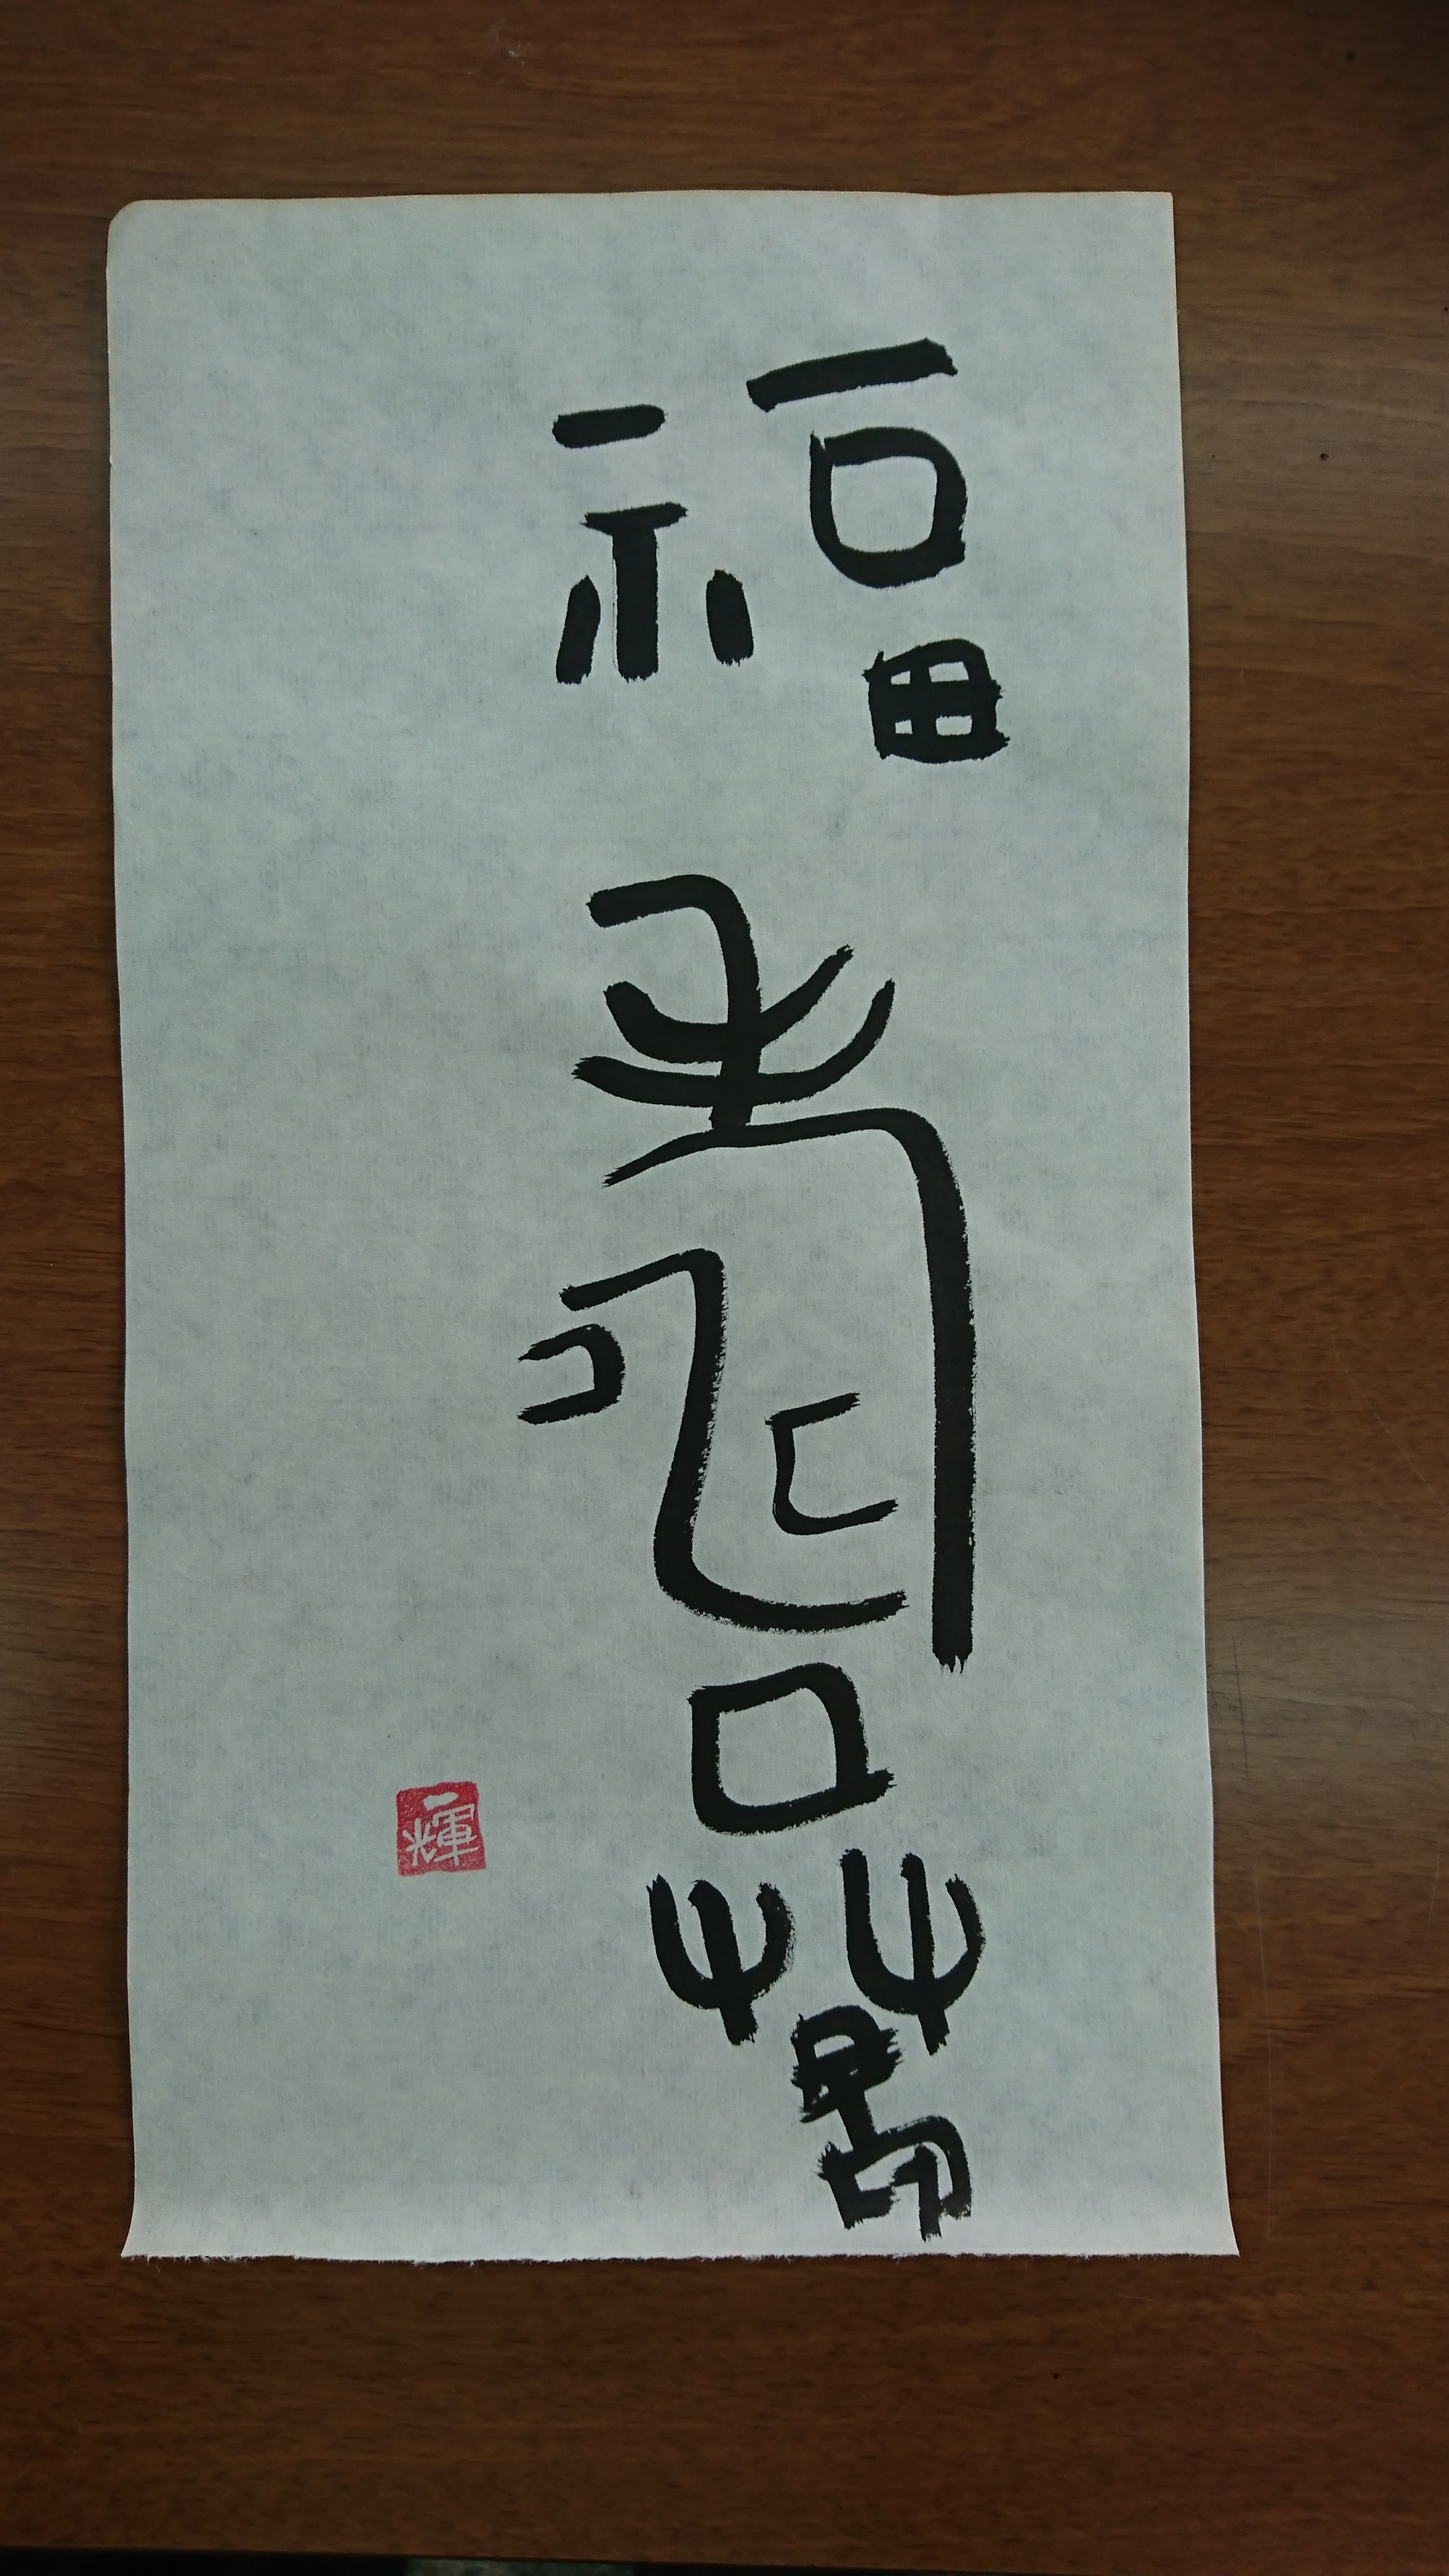 福壽萬
一輝